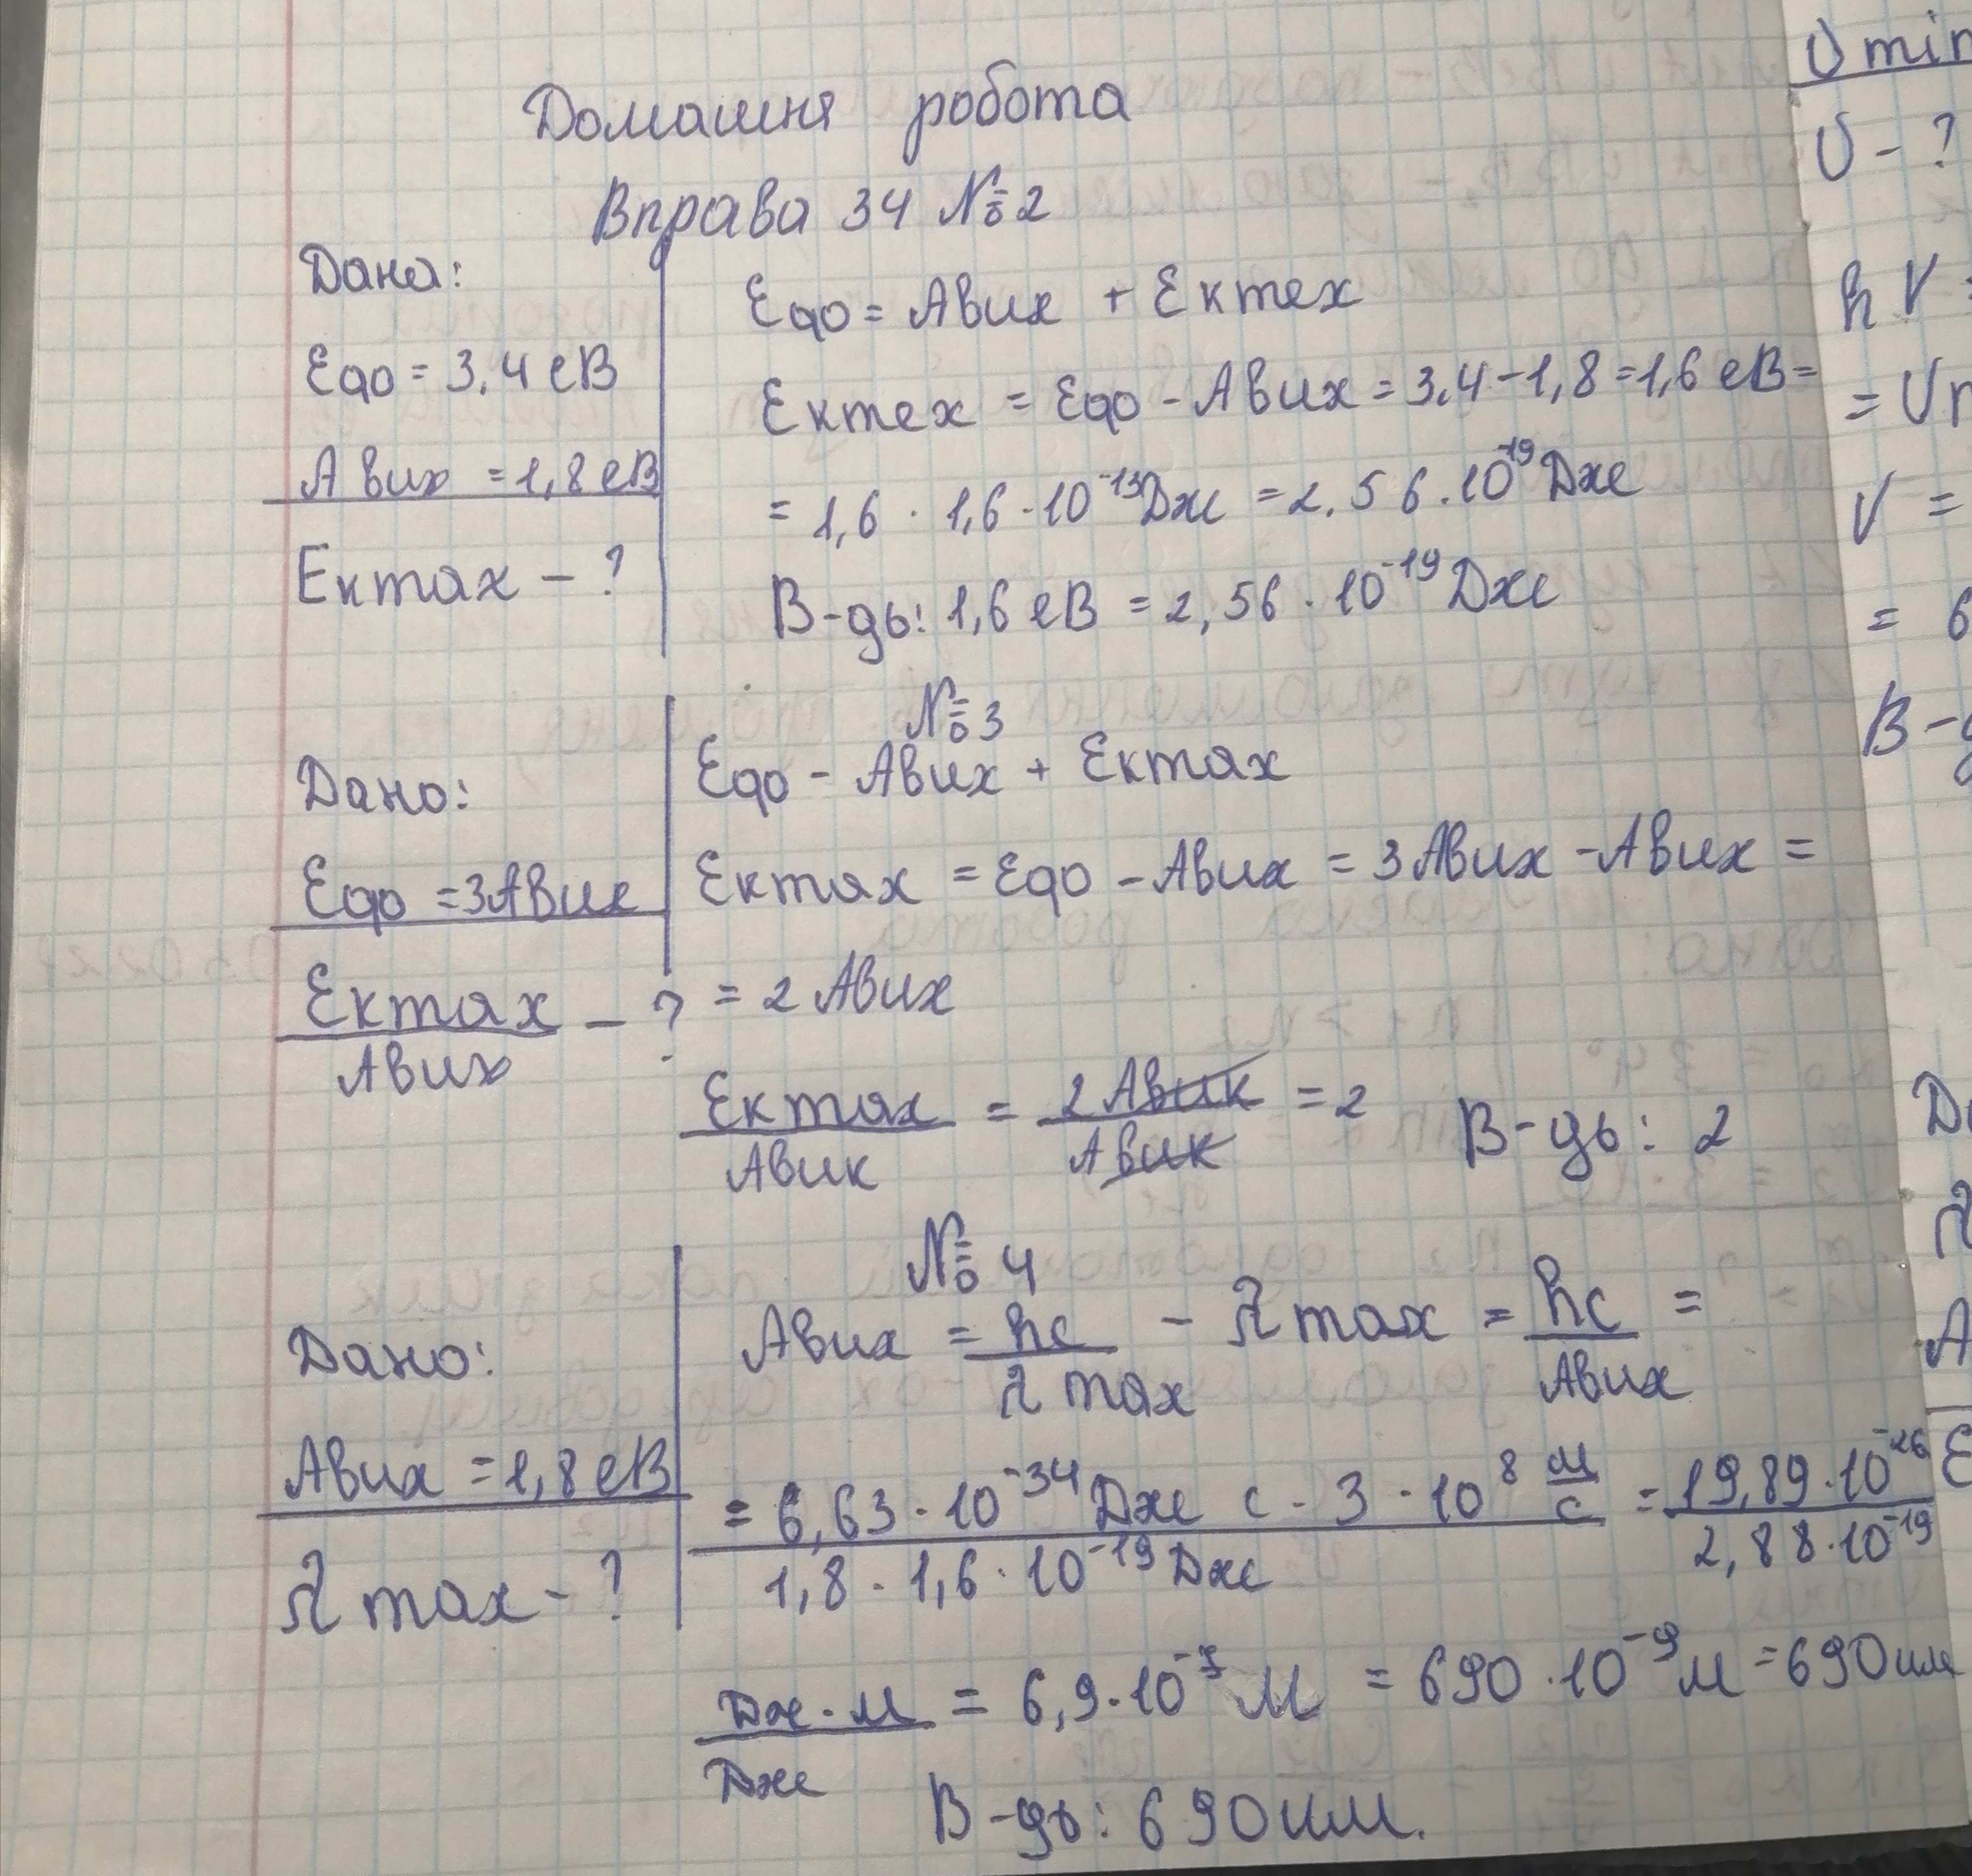 Домашня робота
Вправа 34 № 2
Дано:
Eфо = 3,4 еВ
Aвих = 1,8 еВ
Eк max – ?
Eфо = Aвих + Eк max
Eк max = Eфо – Aвих = 3,4 – 1,8 = 1,6 еВ =
= 1,6 · 1,6 · 10⁻¹⁹ Дж = 2,56 · 10⁻¹⁹ Дж
В-дь: 1,6 еВ = 2,56 · 10⁻¹⁹ Дж
№ 3
Дано:
Eфо = 3Aвих
Eк max / Aвих – ?
Eфо – Aвих + Eк max
Eк max = Eфо – Aвих = 3Aвих – Aвих =
= 2 Aвих
Eк max / Aвик = 2 Aвик / Aвик = 2 В-дь: 2
№ 4
Дано:
Aвих = 1,8 еВ
λ max – ?
Aвих = hc / λ max – λ max = hc / Aвих =
= 6,63 · 10⁻³⁴ Дж с · 3 · 10⁸ м/с / 1,8 · 1,6 · 10⁻¹⁹ Дж = 19,89 · 10⁻²⁶ / 2,88 · 10⁻¹⁹
Дж · м / Дж = 6,9 · 10⁻⁷ м = 690 · 10⁻⁹ м = 690 нм
В-дь: 690 нм.
U min
U – ?
h V =
=
V =
= 6
В-
λ
A
E